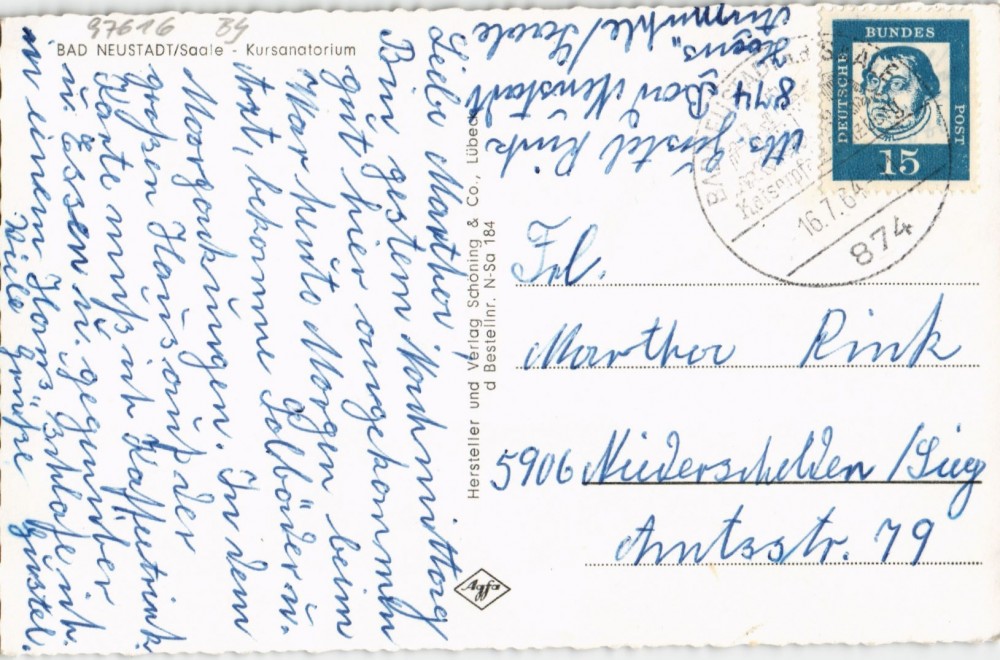 97616 By
BAD NEUSTADT/Saale - Kursanatorium
Liebe Martha!
Bin gestern Nachmittag
gut hier angekommen
War heute Morgen beim
Arzt, bekomme Solbäder u.
Moorpackungen. In dem
großen Haus auf der
Karte muß ich Kaffeetrink.
u. Essen u. gegenüber
in einem Haus schlafe ich.
Viele Grüße Gustel.
Abs. Gustel Rink
874 Bad Neustadt
/Saale
Hersteller und Verlag Schöning & Co., Lübeck
d Bestellnr. N-Sa 184
DEUTSCHE
BUNDES
POST
15
BAD NEUSTADT
SAALE
16.7.64
874
Frl.
Martha Rink
5906 Niederschelden/Sieg
Amtsstr. 79
Agfa